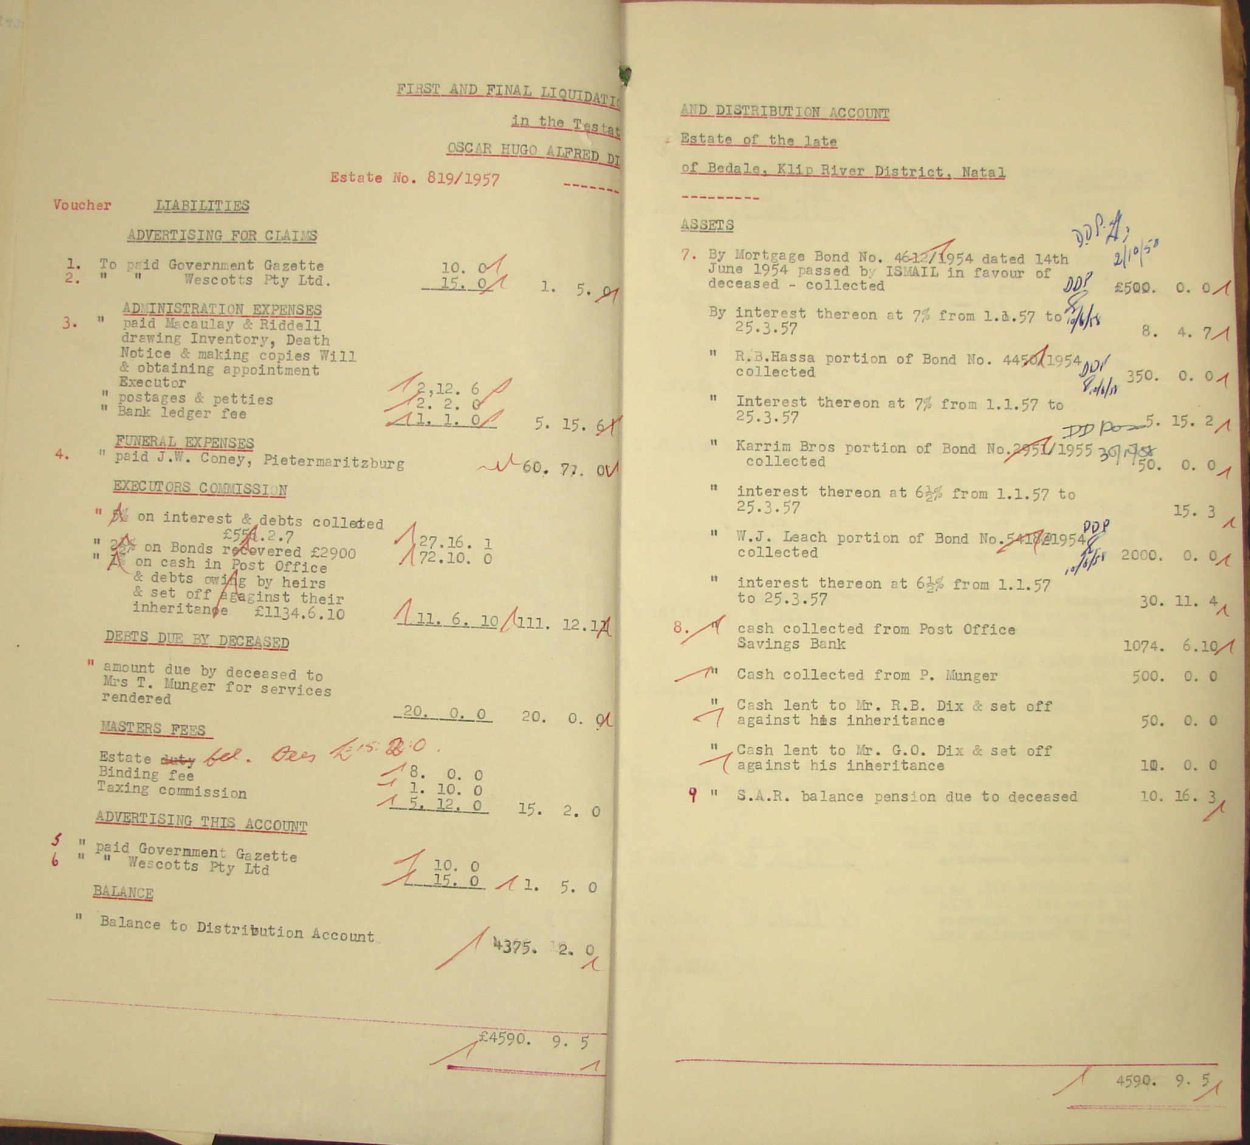 FIRST AND FINAL LIQUIDATIO
in the Testat
OSCAR HUGO ALFRED DI
Estate No. 819/1957
Voucher LIABILITIES
ADVERTISING FOR CLAIMS
1. To paid Government Gazette 10. 0
2. " " Wescotts Pty Ltd. 15. 0 1. 5. 0
ADMINISTRATION EXPENSES
3. " paid Macaulay & Riddell
drawing Inventory, Death
Notice & making copies Will
& obtaining appointment
Executor 2,12. 6
" postages & petties 2. 2. 0
" Bank ledger fee 1. 1. 0 5. 15. 6
FUNERAL EXPENSES
4. " paid J.W. Coney, Pietermaritzburg 60. 7. 0
EXECUTORS COMMISSION
" 5% on interest & debts colleted
£551.2.7 27.16. 1
" 2½% on Bonds recovered £2900 72.10. 0
" on cash in Post Office
& debts owing by heirs
& set off agaginst their
inheritance £1134.6.10 11. 6. 10 111. 12.11
DEBTS DUE BY DECEASED
" amount due by deceased to
Mrs T. Munger for services
rendered 20. 0. 0 20. 0. 0
MASTERS FEES
Estate duty fees £15: 2: 0. 8. 0. 0
Binding fee 1. 10. 0
Taxing commission 5. 12. 0 15. 2. 0
ADVERTISING THIS ACCOUNT
5 " paid Government Gazette 10. 0
6 " " Wescotts Pty Ltd 15. 0 1. 5. 0
BALANCE
" Balance to Distribution Account 4375. 2. 0
£4590. 9. 5
AND DISTRIBUTION ACCOUNT
Estate of the late
of Bedale, Klip River District, Natal
ASSETS
7. By Mortgage Bond No. 4612/1954 dated 14th
June 1954 passed by ISMAIL in favour of
deceased - collected £500. 0. 0
DDP
2/10/58
DDP
10/6/58
By interest thereon at 7% from 1.1.57 to
25.3.57 8. 4. 7
" R.B.Hassa portion of Bond No. 4450/1954
collected 350. 0. 0
DDP
" Interest thereon at 7% from 1.1.57 to
25.3.57 5. 15. 2
" Karrim Bros portion of Bond No.2951/1955
collected 50. 0. 0
" interest thereon at 6½% from 1.1.57 to
25.3.57 15. 3
" W.J. Leach portion of Bond No.5418/1954
collected 2000. 0. 0
DDP
10/6/58
" interest thereon at 6½% from 1.1.57
to 25.3.57 30. 11. 4
8. " cash collected from Post Office
Savings Bank 1074. 6.10
" Cash collected from P. Munger 500. 0. 0
" Cash lent to Mr. R.B. Dix & set off
against his inheritance 50. 0. 0
" Cash lent to Mr. G.O. Dix & set off
against his inheritance 10. 0. 0
9 " S.A.R. balance pension due to deceased 10. 16. 3
4590. 9. 5